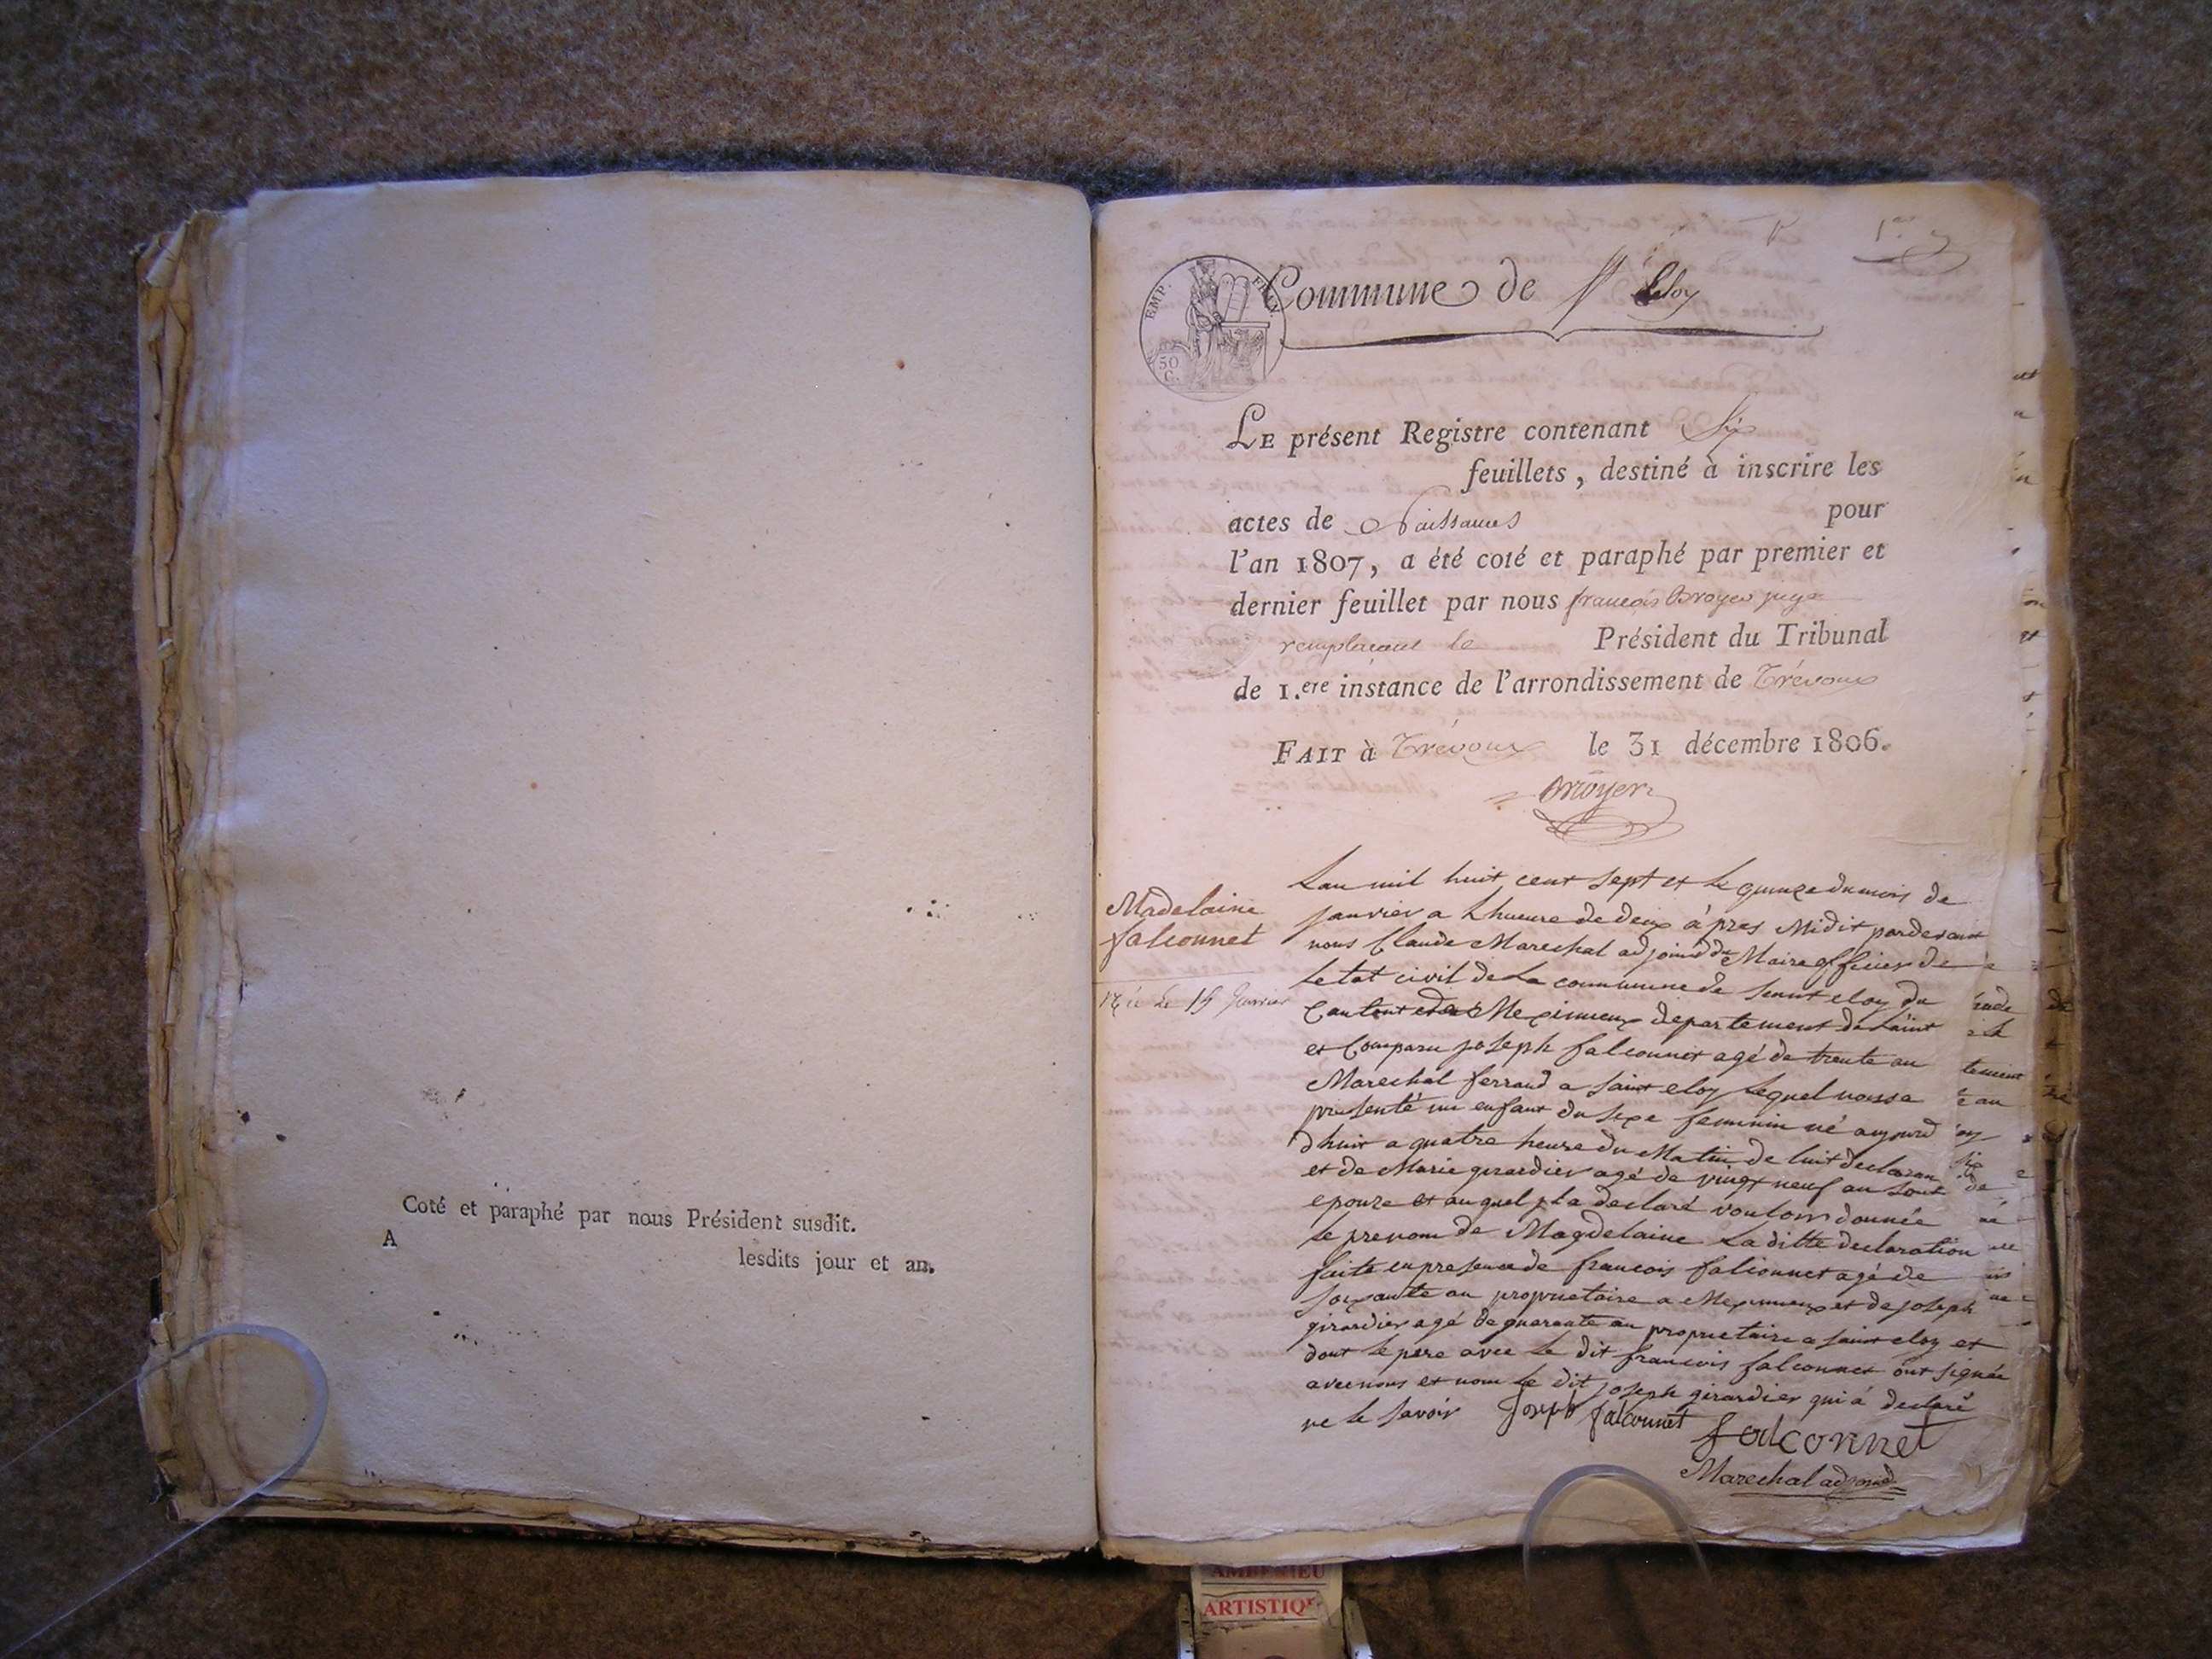 Coté et paraphé par nous Président susdit.
A
lesdits jour et an.
1.er
EMP. FRAN.
50
C.
Commune de St Eloy
LE présent Registre contenant Six
feuillets, destiné à inscrire les
actes de Naissances pour
l'an 1807, a été coté et paraphé par premier et
dernier feuillet par nous françois Brroyer juge
remplaçant le Président du Tribunal
de 1.ere instance de l'arrondissement de Trévoux
FAIT à Trévoux le 31 décembre 1806.
Brroyer
Madelaine
falconnet
née le 15 Janvier
Lan mil huit cent sept et le quinze du mois de
janvier a Lheure de deux après Midit pardevant
nous Claude Marechal adjoind du Maire officier de
Letat civil de La commune de Saint eloy du
Canton de Meximieux departement de Laint
et Comparu joseph falconnet agé de trente an
Marechal ferrand a saint eloy Lequel nousa
presenté un enfant du sexe feminin né aujourd
dhuit a quatre heure du Matin de luit declaran
et de Marie girardier agé de vingt neuf an sont
epouze et auquel jl a declaré vouloir donnée
le prenom de Magdelaine La ditte declaration
faite en presence de francois falconnet agé de
soixante an proprietaire a Meximieux et de joseph
girardier agé de quarante an proprietaire a saint eloy et
dont le pere avec le dit francois falconnet ont signée
avec nous et nom le dit joseph girardier qui á declaré
ne le savoir Joseph falconnet falconnet
Marechal adjoind
AMBERIEU
ARTISTIQ